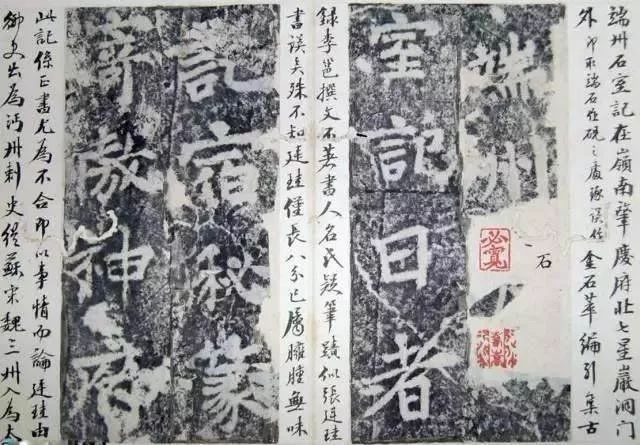 端州石室記在嶺南肇慶府北七星巖洞门
外即取端石作硯之處遂误作金石萃編引集古
端州
石
室記曰者
錄李邕撰文不著書人名氏疑筆蹟似張廷珪
書误矣殊不知廷珪僅長八分已屬臃腫無味
記宿秘篆
帝教神商
此記係正書尤為不合即以事情而論廷珪由
御史出為沔州刺史從蘇宋魏三州入為太